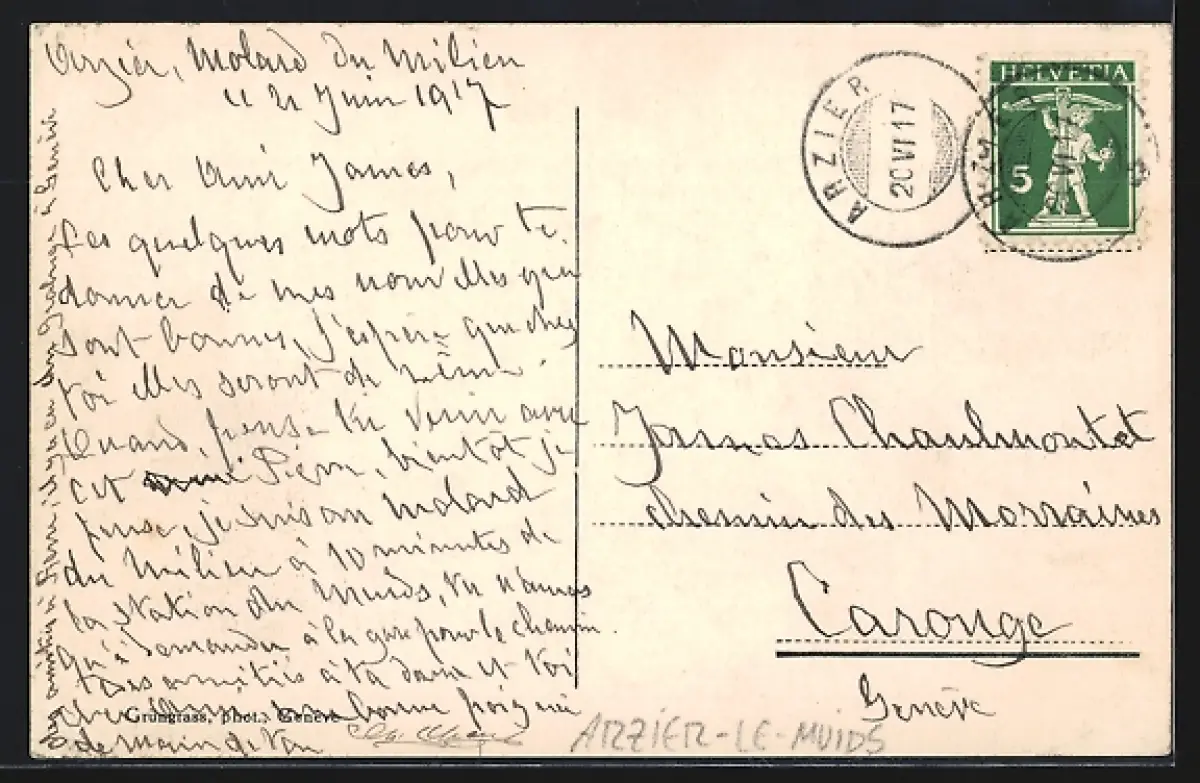 Arzier, Molard du Milieu
le 21 Juin 1917
Cher Ami James,
Ces quelques mots pour te
donner de mes nouvelles qui
sont bonnes, j'espère que chez
toi elles seront de même.
Quand, pense tu venir avec
cet Pierre, bientôt je
pense, je suis au Molard
du Milieu à 10 minutes de
la station du Muids, tu n'auras
qu'à demander à la gare pour le chemin.
amitiés à ta dame et toi
bonne poignée
de main de ton
amitiés à Pierre, à Genève
Grüngrass, phot., Genève
ARZIER
20 VI 17
HELVETIA
5
Monsieur
James Chaulmontet
chemin des Morraines
Carouge
Genève
ARZIER-LE-MUIDS